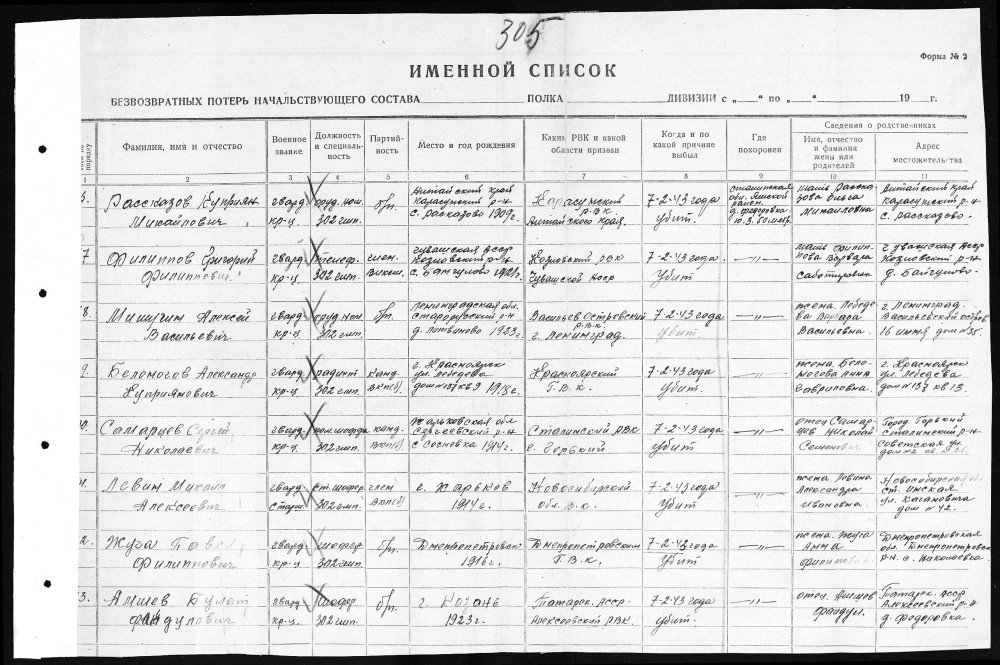 305
Форма № 2
ИМЕННОЙ СПИСОК
БЕЗВОЗВРАТНЫХ ПОТЕРЬ НАЧАЛЬСТВУЮЩЕГО СОСТАВА ПОЛКА ДИВИЗИИ с „ “ по „ “ 19 г.
порядку
Фамилия, имя и отчество
Военное звание
Должность и специальность
Партийность
Место и год рождения
Каким РВК и какой области призван
Когда и по какой причине выбыл
Где похоронен
Сведения о родственниках
Имя, отчество и фамилия жены или родителей
Адрес местожительства
1 2 3 4 5 6 7 8 9 10 11
Рассказов Куприян Михайлович гвард. кр-ц. 302 гмп. б/п. Алтайский край Карасукский р-н с. Расказово 1909г. Карасукский Р.В.К. Алтайского края. 7-2-43 года убит. Михайловна Алтайский край Карасукский р-н с. Рассказово.
7 Филиппов Григорий Филиппович. гвард. кр-ц. телеф. 302 гмп. член. Чувашская АССР Козловский р-н Козловский РВК Чувашской АССР 7-2-43 года Убит мать Филиппова Варвара Чувашская АССР Козловский р-н д. Байгулово.
8. Мишучин Алексей Васильевич. гвард. кр-ц. 302 гмп. б/п. Ленинградская обл. Старорусский р-н 1923г. Васильев Островский Р.В.К. г. Ленинград. 7-2-43 года Убит. жена. Лебедева Варвара Васильевна. г. Ленинград. Васильевский остров 16 линия дом №35.
9. Беломогов Александр Куприянович гвард. кр-ц. радист 302 гмп. канд. ВКП(б) г. Красноярск ул. Лебедева 1918г. Красноярский Г.В.К. 7-2-43 года Убит. —"— жена. Беломогова Анна Гавриловна. г. Красноярск ул. Лебедева дом №137 кв 13.
Самарцев Сергей Николаевич гвард. кр-ц. 302 гмп. канд. ВКП(б) Харьковская обл с Сосновка 1914г. Сталинский РВК г. Горький 7-2-43 года убит —"— отец Самарцев Николай Семенович Город Горький Сталинский р-н Советская ул.
Левин Михаил Алексеевич. гвард. ст. шофер. 302 гмп. член ВКП(б) г. Харьков 1914г. Новосибирский обл. В.К. 7-2-43 года Убит —"— жена. Левина Александра Ивановна. ст. Инская ул. Кагановича дом №42.
2. Жуча Павел Филиппович. гвард. кр-ц. шофер 302 гмп. б/п. Днепропетровск 1916г. Днепропетровским Г.В.К. 7-2-43 года Убит —"— жена. Жуча Анна Днепропетровская обл. с. Николаевка.
3. Амшев Булат гвард. кр-ц. шофер 302 гмп. б/п. г. Казань 1923г. Татарск. АССР. Алексеевский РВК. 7-2-43 года убит. —"— отец. Татарск. АССР Алексеевский р-н д. Федоровка.